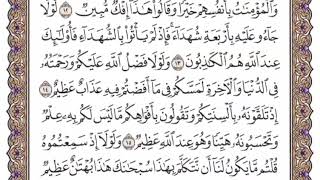 وَٱلْمُؤْمِنَٰتُ بِأَنفُسِهِمْ خَيْرًا وَقَالُوا۟ هَٰذَآ إِفْكٌ مُّبِينٌ ١٢ لَّوْلَا
جَآءُو عَلَيْهِ بِأَرْبَعَةِ شُهَدَآءَ فَإِذْ لَمْ يَأْتُوا۟ بِٱلشُّهَدَآءِ فَأُو۟لَٰٓئِكَ
عِندَ ٱللَّهِ هُمُ ٱلْكَٰذِبُونَ ١٣ وَلَوْلَا فَضْلُ ٱللَّهِ عَلَيْكُمْ وَرَحْمَتُهُۥ
فِى ٱلدُّنْيَا وَٱلْءَاخِرَةِ لَمَسَّكُمْ فِى مَآ أَفَضْتُمْ فِيهِ عَذَابٌ عَظِيمٌ ١٤
إِذْ تَلَقَّوْنَهُۥ بِأَلْسِنَتِكُمْ وَتَقُولُونَ بِأَفْوَاهِكُم مَّا لَيْسَ لَكُم بِهِۦ عِلْمٌ
وَتَحْسَبُونَهُۥ هَيِّنًا وَهُوَ عِندَ ٱللَّهِ عَظِيمٌ ١٥ وَلَوْلَآ إِذْ سَمِعْتُمُوهُ
قُلْتُم مَّا يَكُونُ لَنَآ أَن نَّتَكَلَّمَ بِهَٰذَا سُبْحَٰنَكَ هَٰذَا بُهْتَٰنٌ عَظِيمٌ